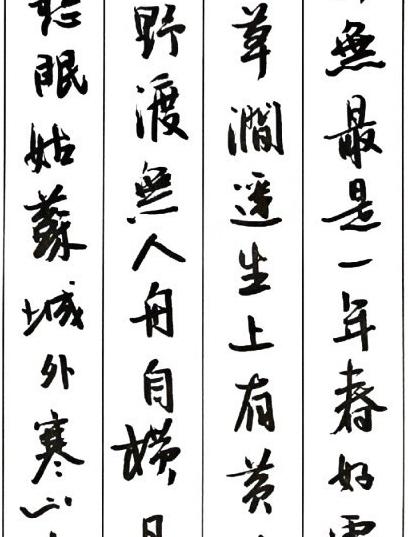 無最是一年春好
草澗邊生上有黃
野渡無人舟自橫
愁眠姑蘇城外寒山